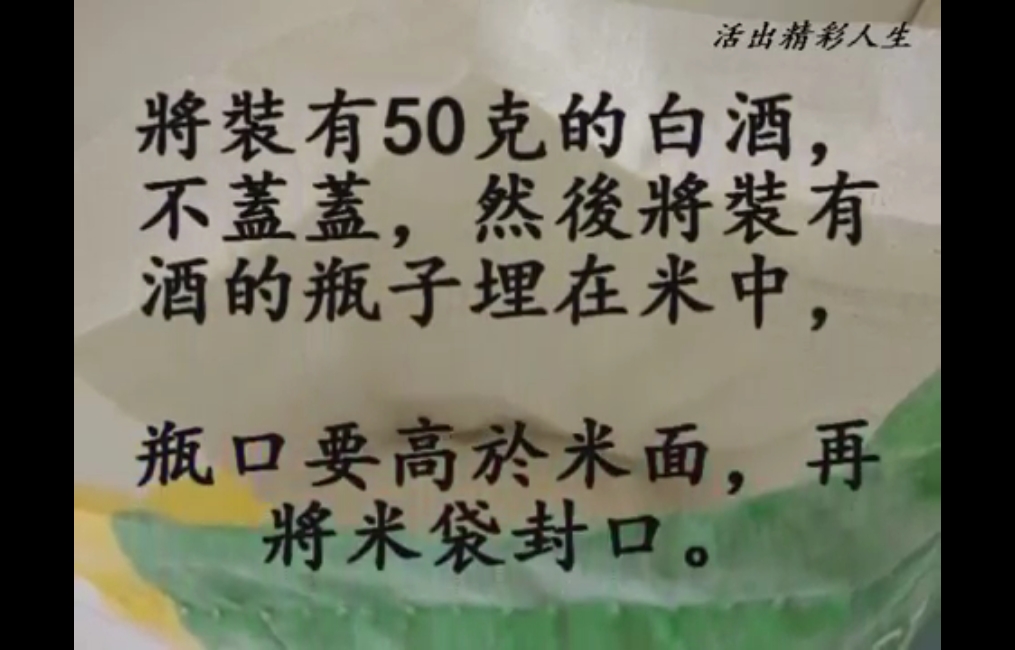 活出精彩人生
將裝有50克的白酒，
不蓋蓋，然後將裝有
酒的瓶子埋在米中，
瓶口要高於米面，再
將米袋封口。